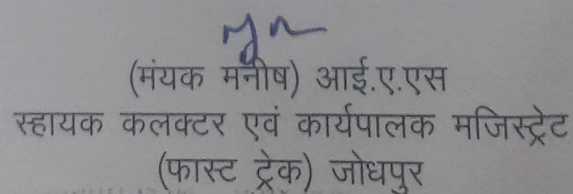 (मंयक मनीष) आई.ए.एस
स्हायक कलक्टर एवं कार्यपालक मजिस्ट्रेट
(फास्ट ट्रेक) जोधपुर